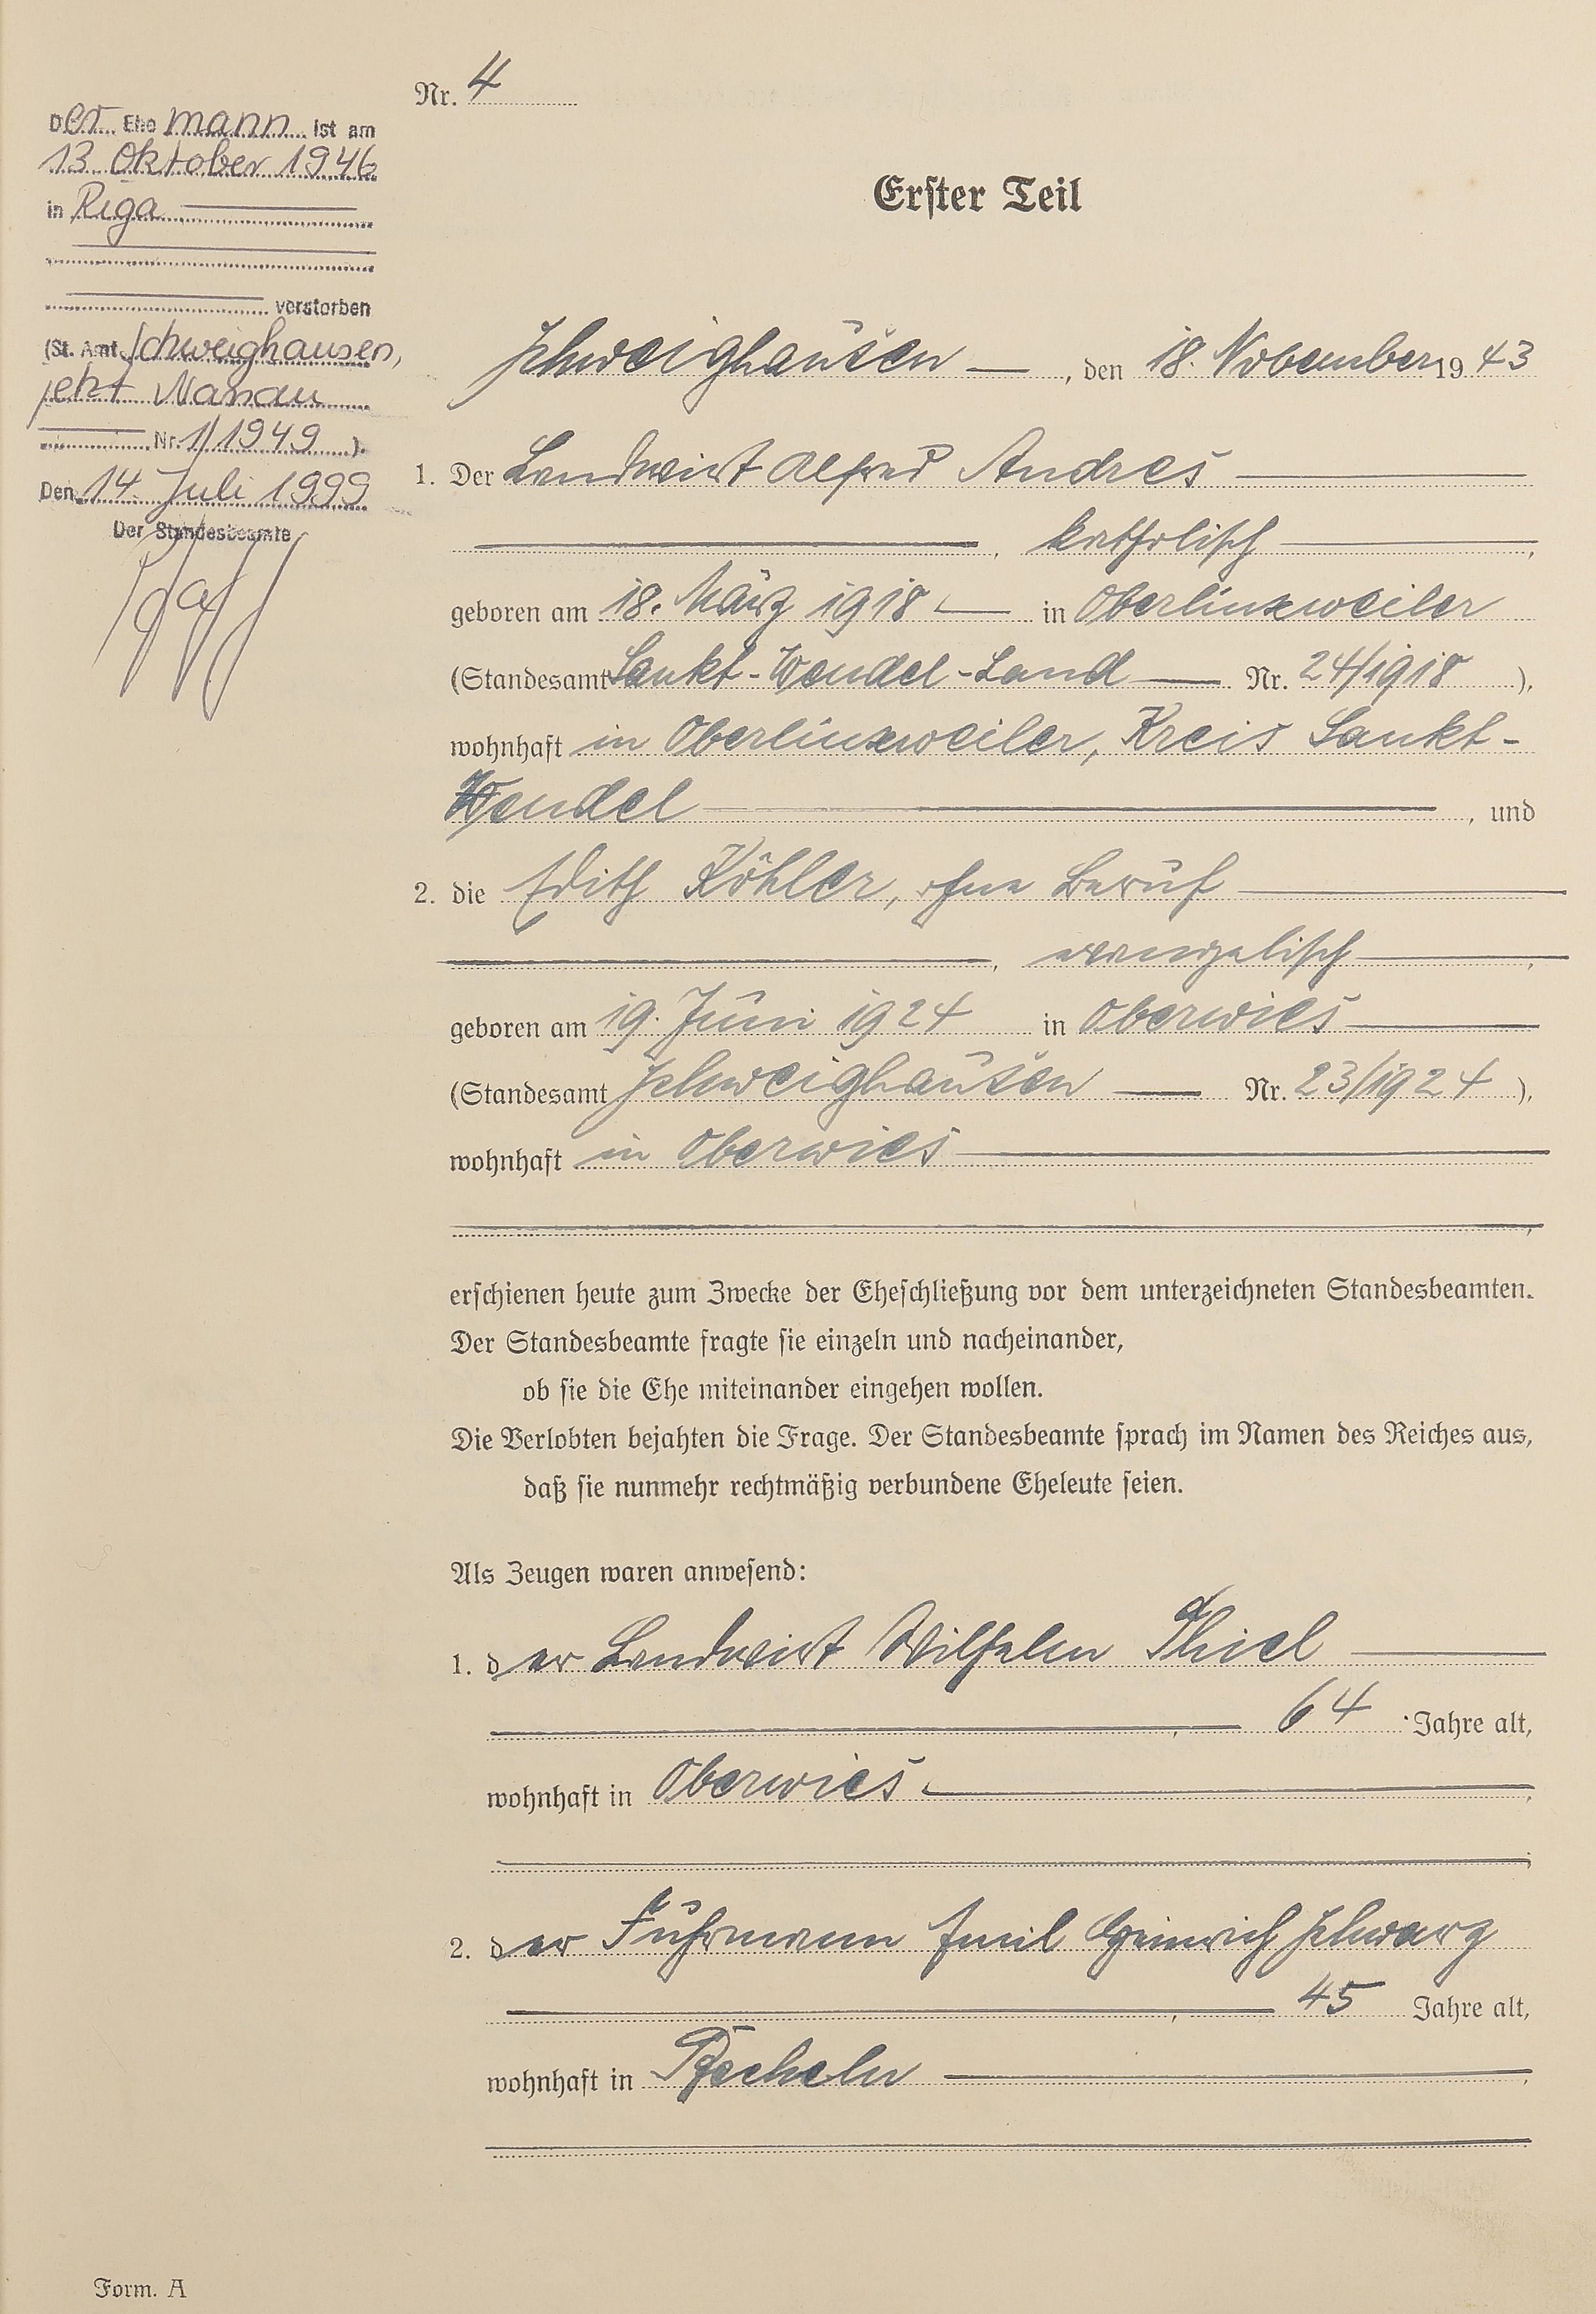 Nr. 4
Der Ehe mann ist am
13. Oktober 1946
in Riga
verstorben
(St. Amt Schweighausen,
jetzt Nassau
Nr. 1/1949 ).
Den 14. Juli 1999
Der Standesbeamte
Erster Teil
Schweighausen, den 18. November 1943
1. Der Landwirt Alfred Andres
, katholisch,
geboren am 18. März 1918 in Oberlinxweiler
(Standesamt Sankt-Wendel-Land Nr. 24/1918 ),
wohnhaft in Oberlinxweiler, Kreis Sankt-
Wendel, und
2. die Edith Köhler, ohne Beruf
, evangelisch,
geboren am 19. Juni 1924 in Oberwies
(Standesamt Schweighausen Nr. 23/1924 ),
wohnhaft in Oberwies
,
erschienen heute zum Zwecke der Eheschließung vor dem unterzeichneten Standesbeamten.
Der Standesbeamte fragte sie einzeln und nacheinander,
ob sie die Ehe miteinander eingehen wollen.
Die Verlobten bejahten die Frage. Der Standesbeamte sprach im Namen des Reiches aus,
daß sie nunmehr rechtmäßig verbundene Eheleute seien.
Als Zeugen waren anwesend:
1. der Landwirt Wilhelm Thiel
, 64 Jahre alt,
wohnhaft in Oberwies,
;
2. der Fuhrmann Emil Heinrich Schwarz
, 45 Jahre alt,
wohnhaft in Becheln,
Form. A